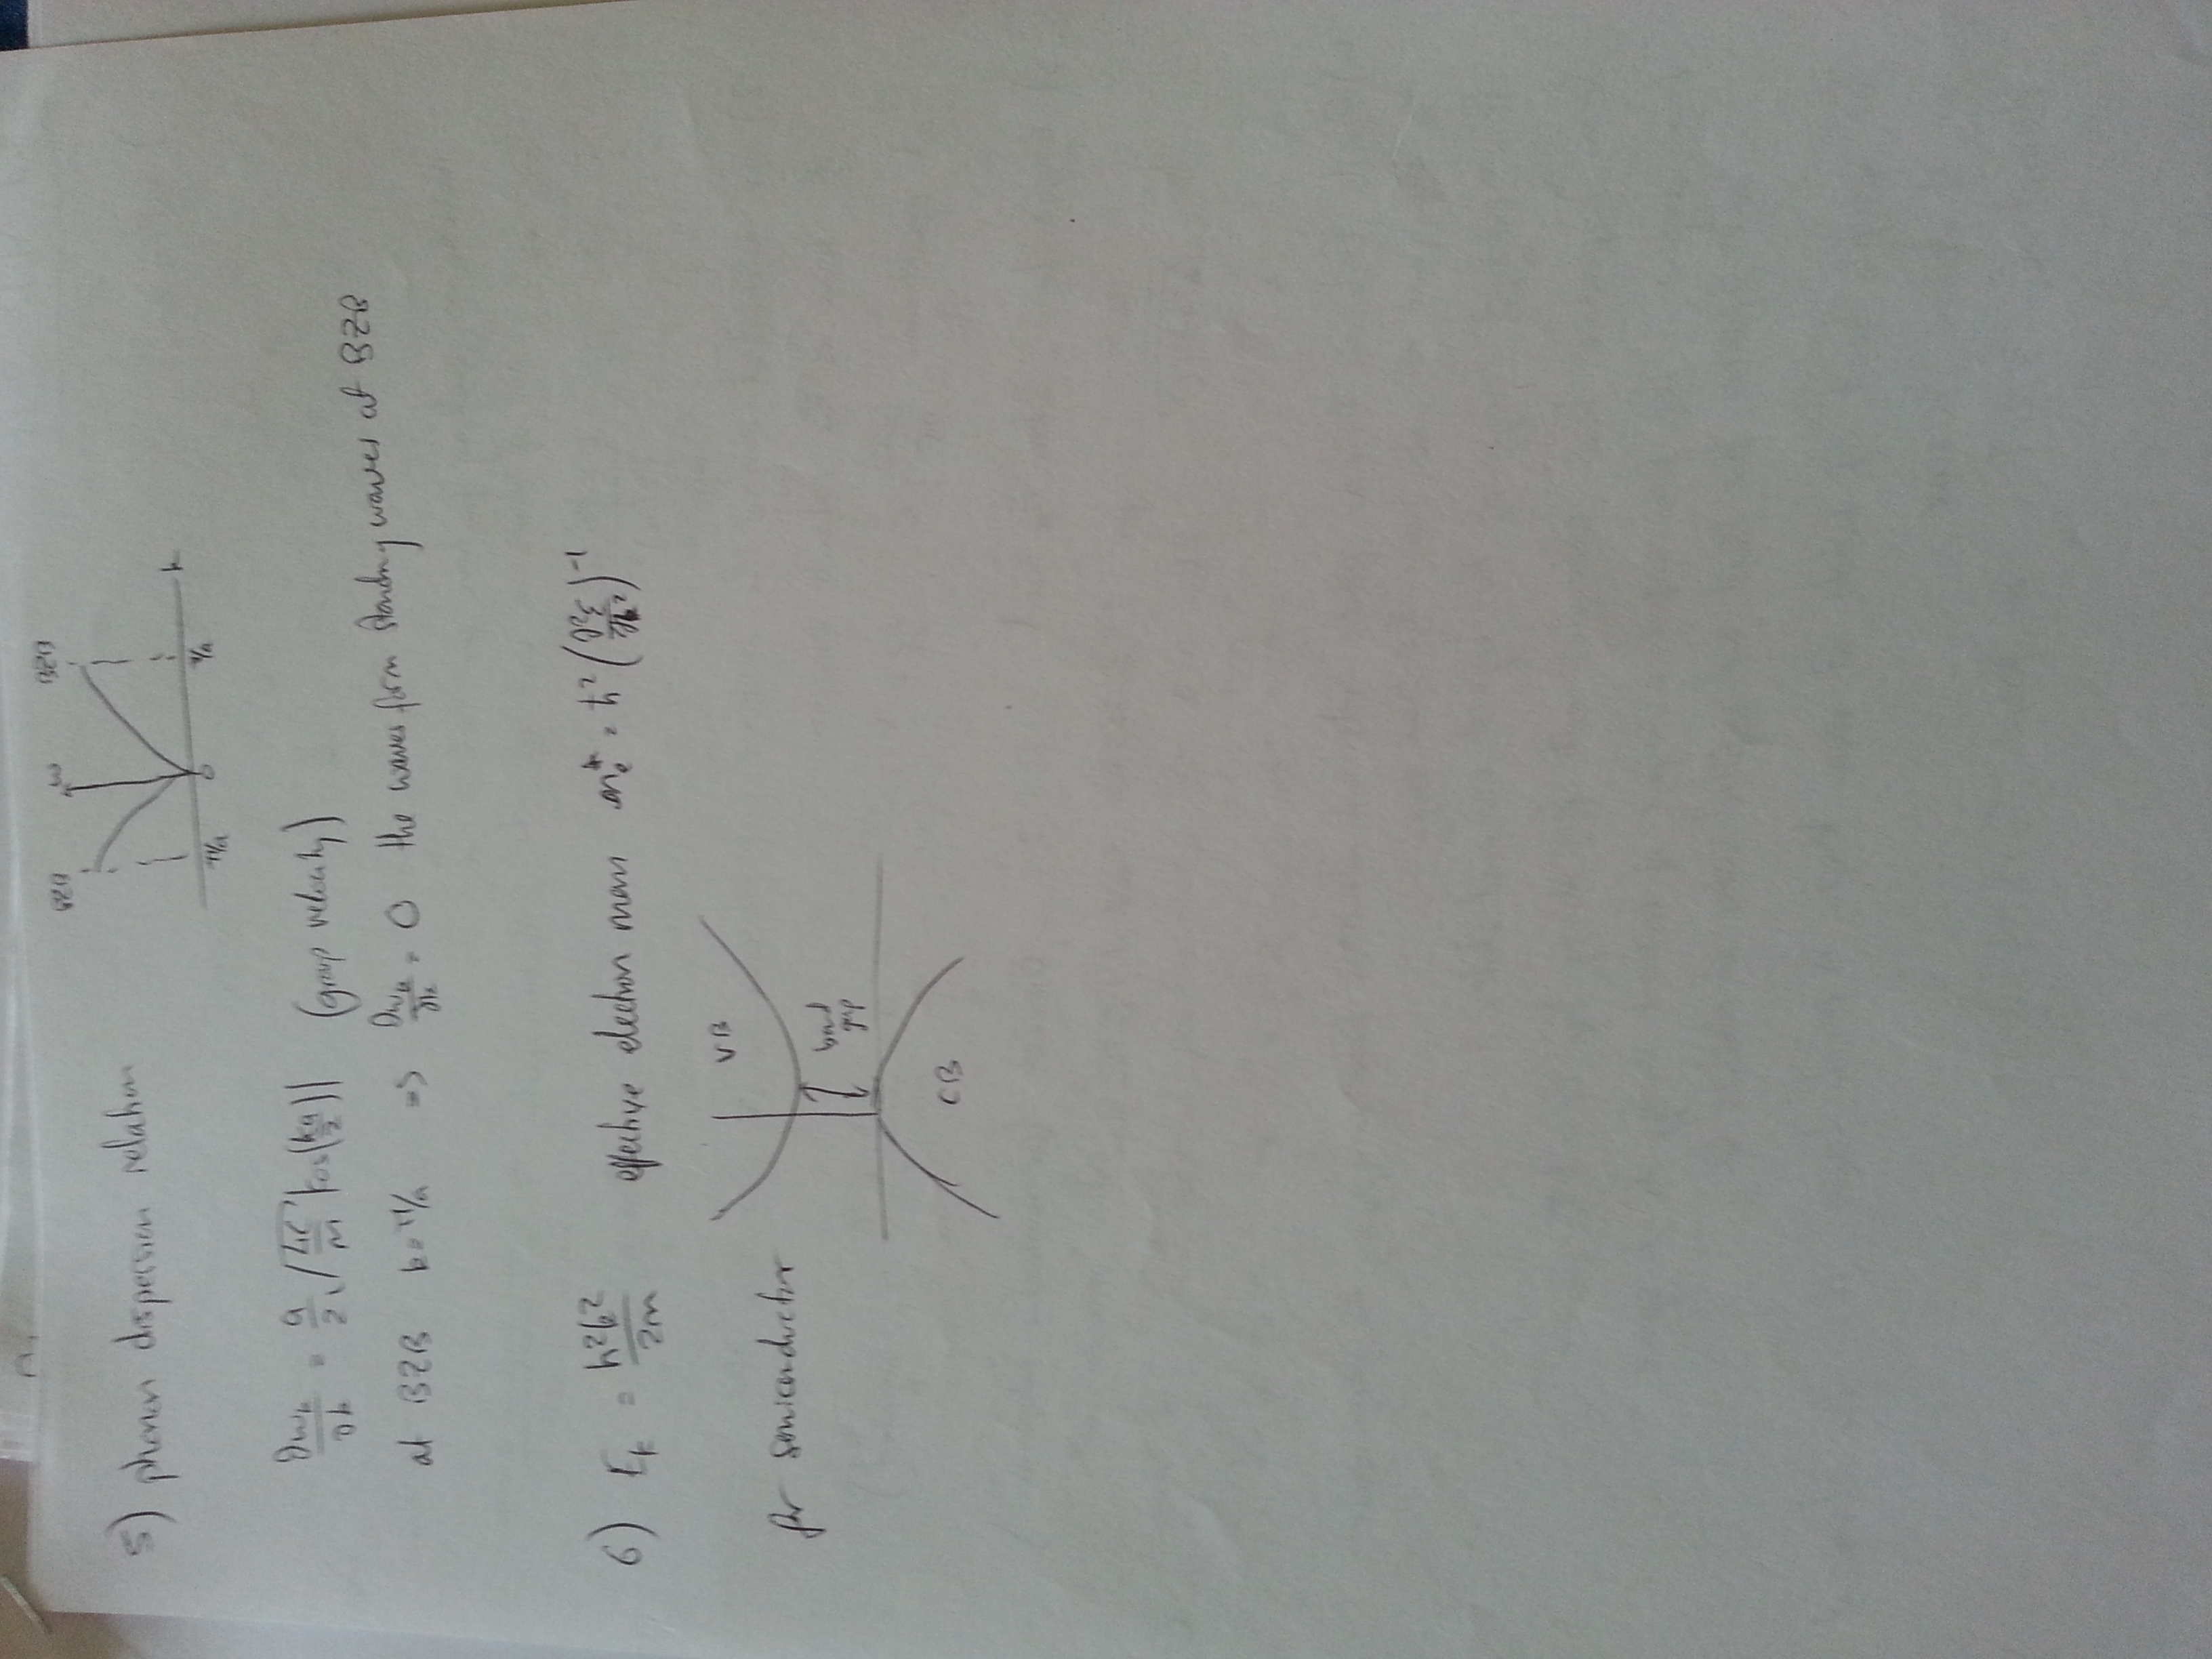 BZB ω BZB
5) phonon dispersion relation
k
π/a 0 π/a
∂ωk/∂k = a/2 √(4C/m) |cos(ka/2)| (group velocity)
at BZB k=π/a => ∂ωk/∂k = 0 the waves form standing waves at BZB
6) Ek = ħ²k²/2m effective electron mass me* = ħ² (∂²ε/∂k²)⁻¹
VB
for semiconductor
band
gap
CB